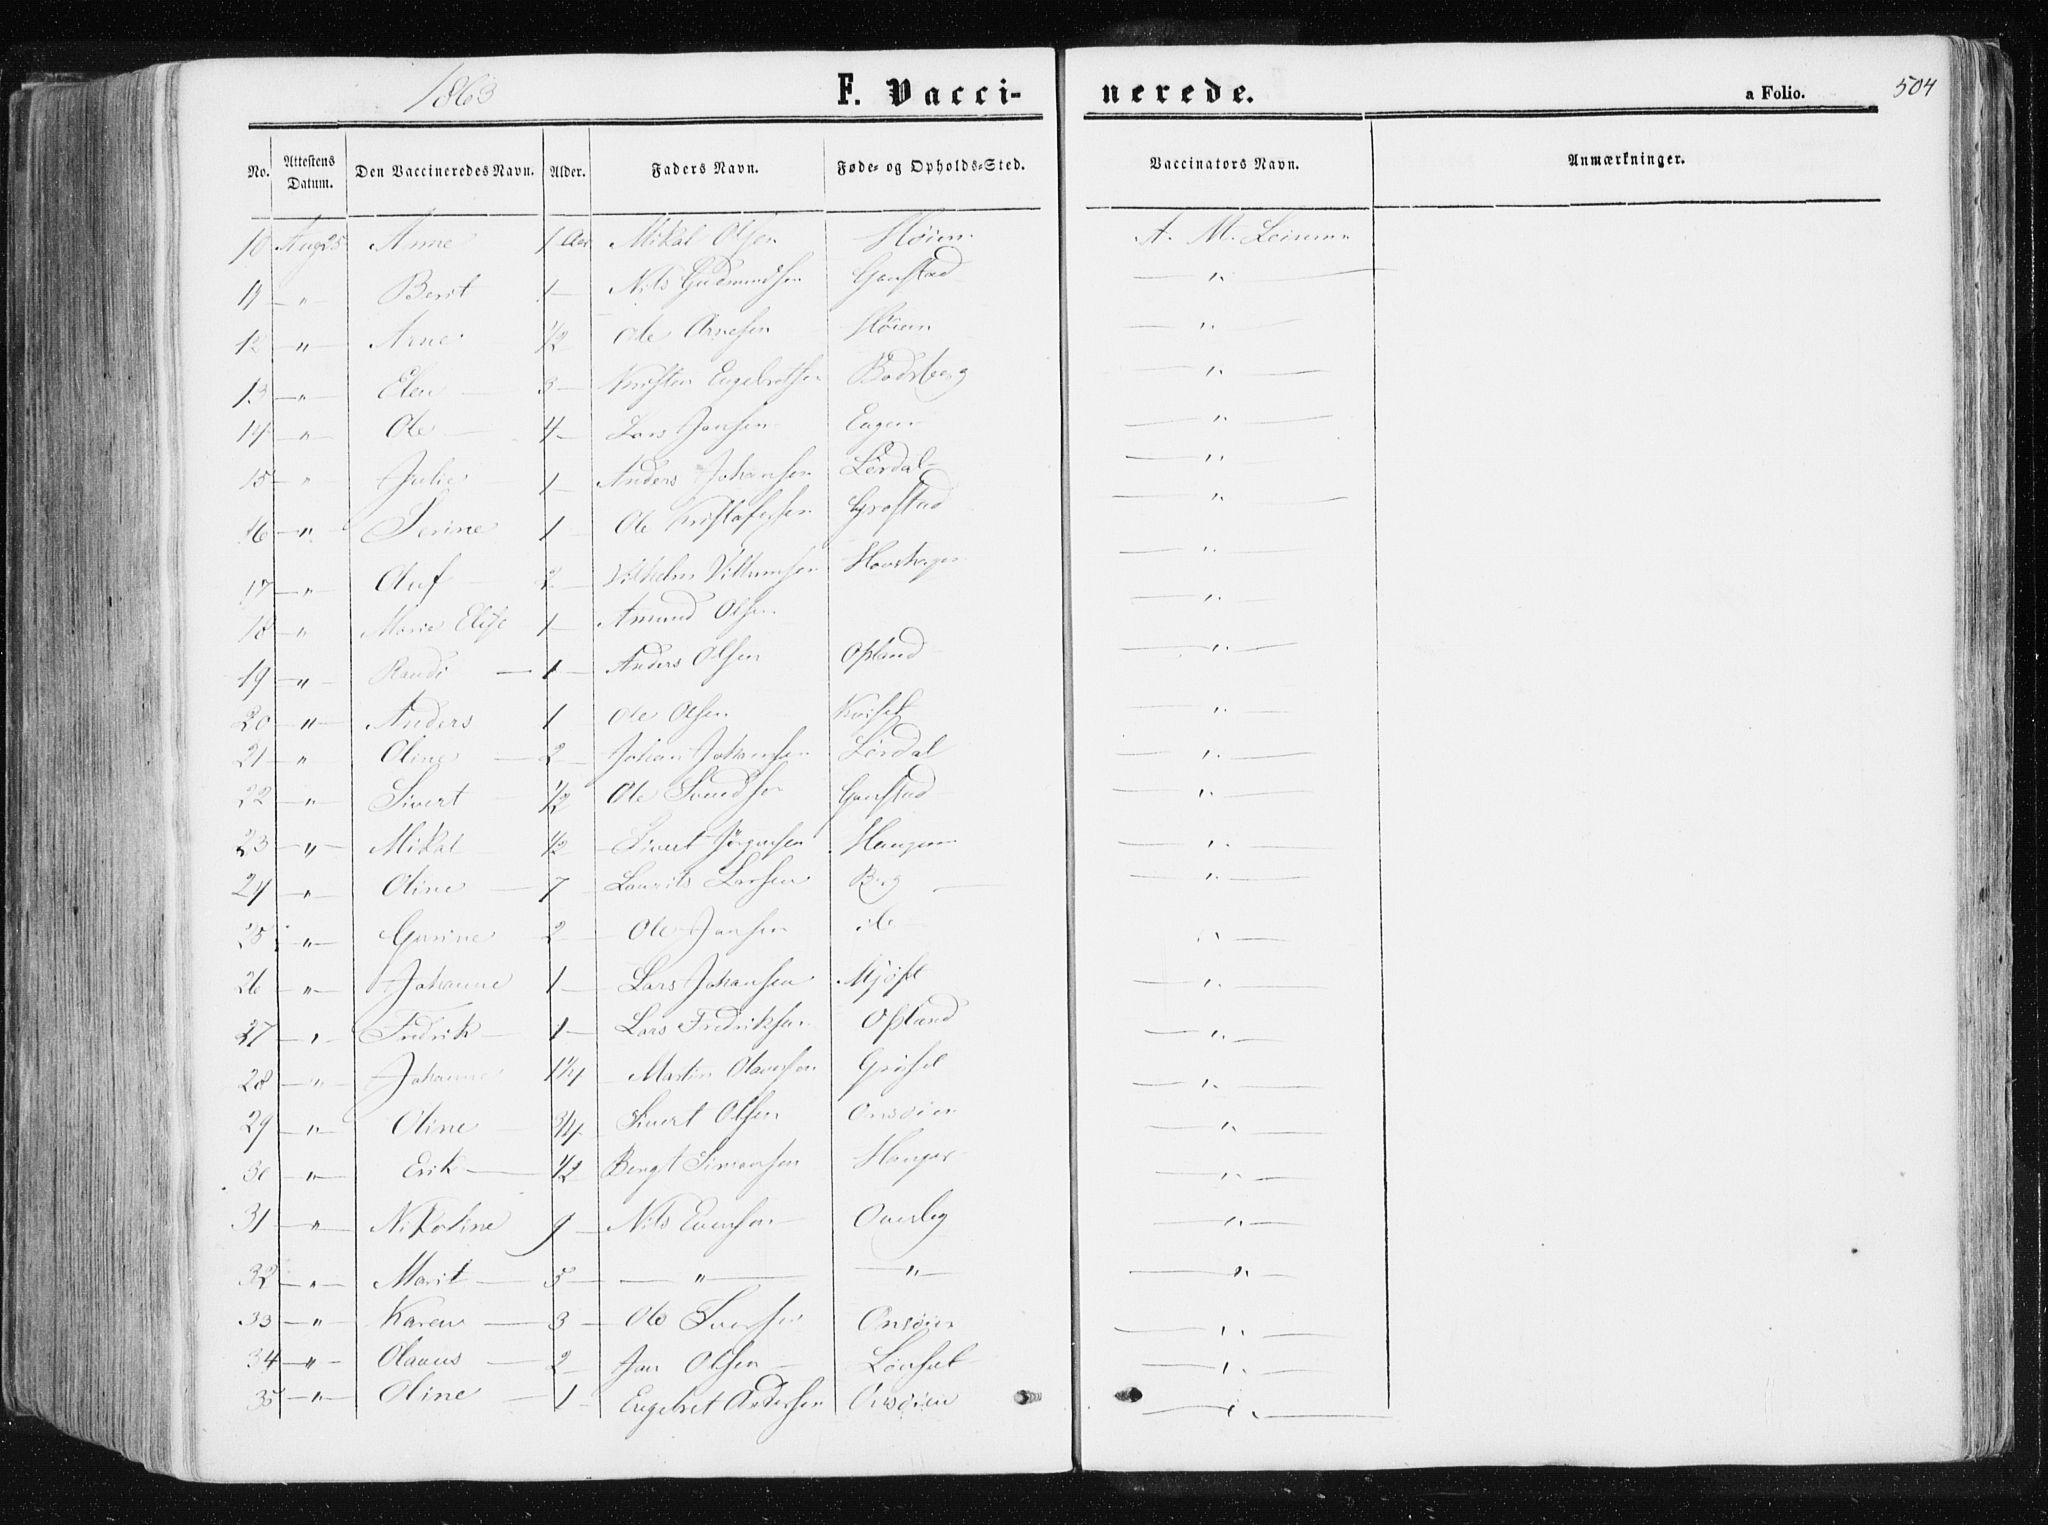 1863 F. Vacci- nerede. a Folio. 504
No. Attestens Datum. Den Vaccineredes Navn. Alder. Faders Navn. Føde- og Opholds-Sted. Vaccinators Navn. Anmærkninger.
10 Aug 25 Anne 1 Aar Mikal Olsen Höien A. M. Leirum
11 " Berit 1 Nils Gudmundsen Ganstad "
12 " Arne 1/2 Ole Arnesen Höien "
13 " Elen 3 Kristen Engebretsen Bodsberg "
14 " Ole 4 Lars Jonsen Eugen "
15 " Julie 1 Anders Johansen Lördal "
16 " Serine 1 Ole Kristofersen Grostad "
17 " Oluf 2 Vilhelm Villumsen "
18 " Marie Elise 1 Amund Olsen "
19 " Randi 1 Anders Olsen Opland "
20 " Anders 1 Ole Olsen "
21 " Oline 2 Johan Johansen Lördal "
22 " Sivert 1/2 Ole Svendsen Ganstad "
23 " Mikal 1/2 Sivert Jörgensen Haugum "
24 " Oline 7 Laurits Larsen Berg "
25 " Gurine 2 Ole Jonsen "
26 " Johanne 1 Lars Johansen Mjöset "
27 " Fredrik 1 Lars Fredriksen Opland "
28 " Johanne 1 1/4 Martin Olaussen Gröset "
29 " Oline 3/4 Sivert Olsen Onsöien "
30 " Erik 1/2 Bengt Simonsen Hauger "
31 " Nikoline 9 Nils Evensen Oversleg "
32 " Marit 5 " " "
33 " Karen 3 Ole Sversen Onsöien "
34 " Olaus 2 Jon Olsen Lönset "
35 " Oline 1 Engebret Andersen Onsöien "